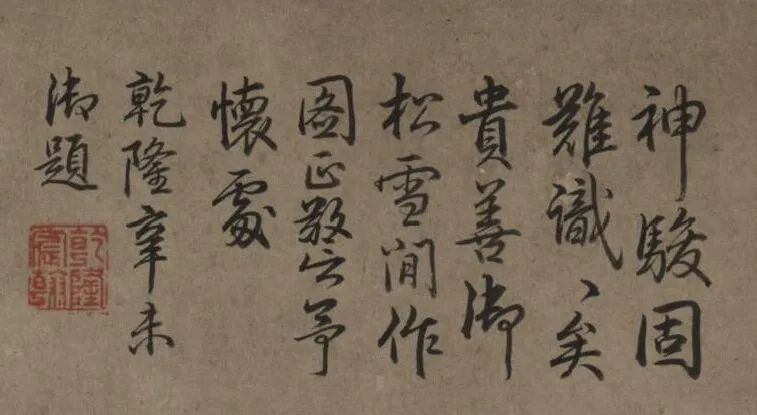 神駿固
難識〻矣
貴善御
松雪閒作
圖正予
懷處
乾隆辛未
御題
乾隆
宸翰